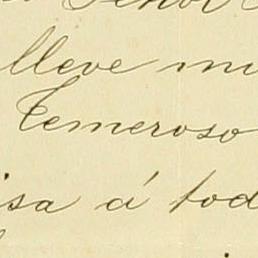 Señor
lleve mi
Temeroso
isa á tod